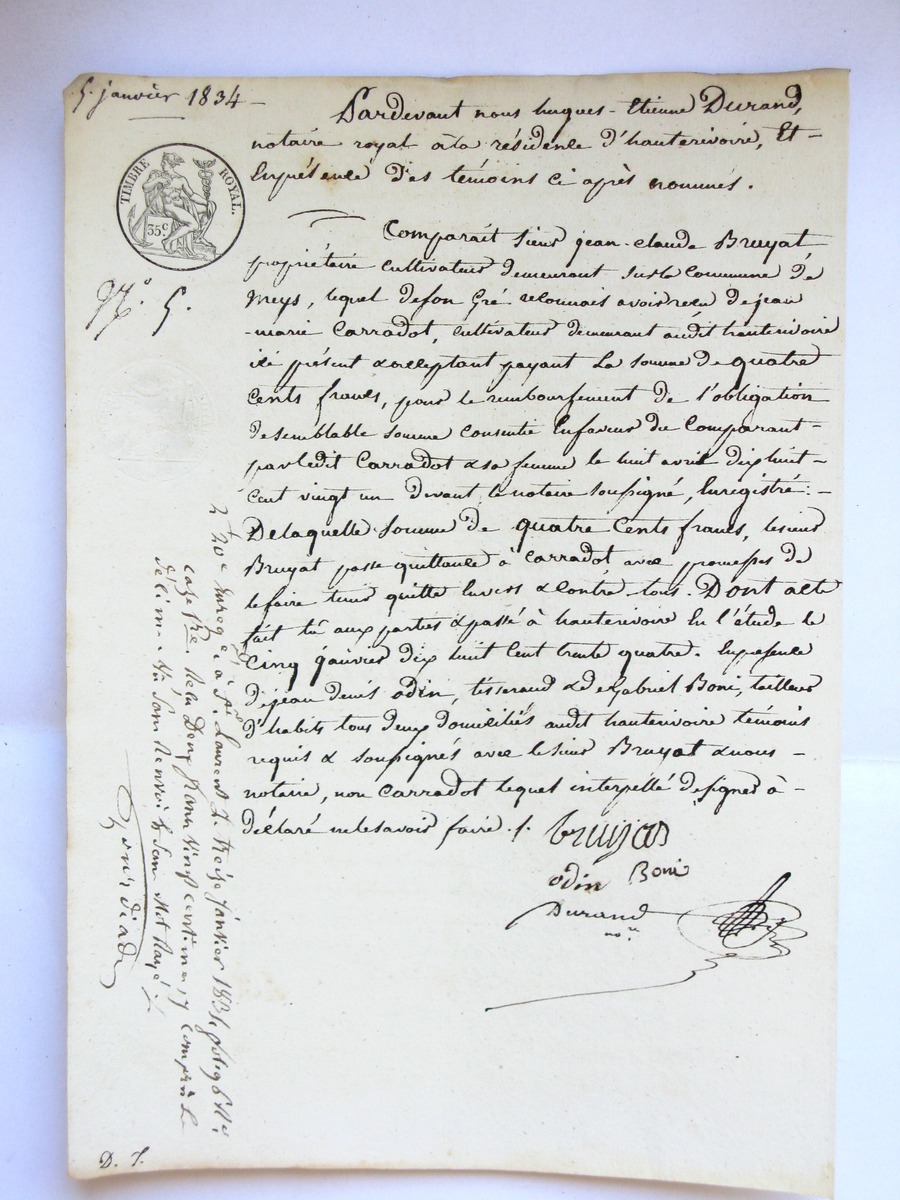 5. janvier 1834 -
Pardevant nous hugues - Etienne Durand,
notaire royal à la résidence d'hauterivoire, Et -
En présence des témoins ci après nommés.
TIMBRE ROYAL.
35.c
N.o 5.
Comparait sieur jean-claude Bruyat
propriétaire cultivateur demeurant sur la Commune de
Meys, lequel de son Gré reconnait avoir reçu de jean
-marie Carradot, cultivateur demeurant audit hauterivoire
ici présent & acceptant payant la somme de quatre
cents francs, pour le remboursement de l'obligation
de semblable somme consentie En faveur du Comparant -
par ledit Carradot & sa femme le huit avril dix huit -
cent vingt un devant le notaire soussigné, Enregistré: -
De laquelle somme de quatre Cents francs, le sieur
Bruyat passe quittance à Carradot avec promesses de
le faire tenir quitte Envers & contre tous. Dont acte
fait lu aux parties & passé à hauterivoire En l'étude le
Cinq janvier dix huit Cent trente quatre. En présence
de jean denis odin, tisserand & de Gabriel Boni, tailleur
d'habits tous deux domiciliés audit hauterivoire témoins
requis & soussignés avec le sieur Bruyat & nous -
notaire, non Carradot lequel interpellé de signer à -
déclaré ne le savoir faire ./.
bruyas
odin Boni
Durand
no.re
Enreg.é à S.t Laurent le treize janvier 1834, folio 96 V.o
case 1re. Reçu Deux francs vingt centimes y compris le
décime. Vu sans Renvoi & sans Mot Rayé ./.
D. J.